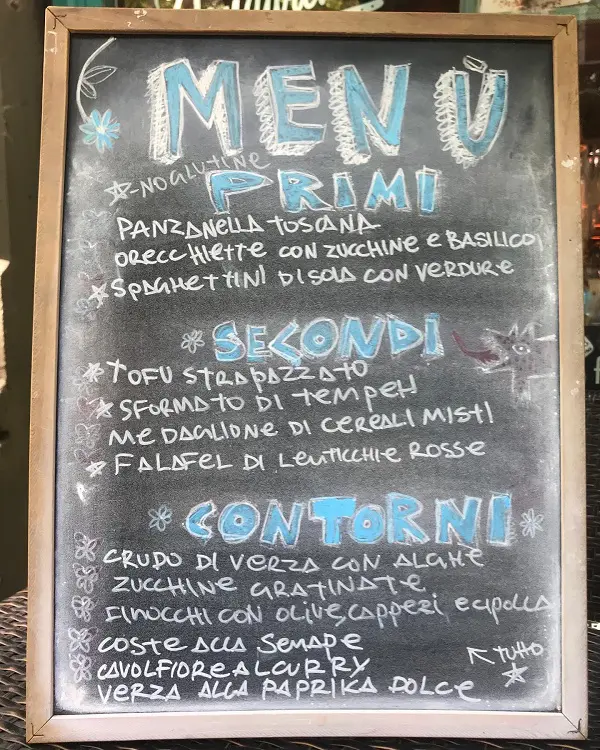 MENÙ
☆-NO GLUTINE
PRIMI
PANZANELLA TOSCANA
ORECCHIETTE CON ZUCCHINE E BASILICO
☆ SPAGHETTINI DI SOIA CON VERDURE
SECONDI
☆ TOFU STRAPAZZATO
☆ SFORMATO DI TEMPEH
MEDAGLIONE DI CEREALI MISTI
☆ FALAFEL DI LENTICCHIE ROSSE
CONTORNI
CRUDO DI VERZA CON ALGHE
ZUCCHINE GRATINATE
FINOCCHI CON OLIVE, CAPPERI E CIPOLLA
COSTE ALLA SENAPE
↖ TUTTO ☆
CAVOLFIORE AL CURRY
VERZA ALLA PAPRIKA DOLCE